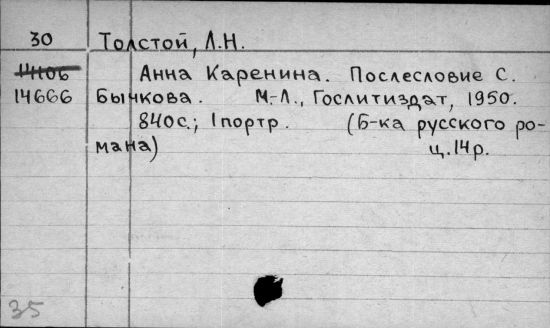 30 Толстой, Л.Н.
14106 Анна Каренина. Послесловие С.
14666 Бычкова. М.-Л., Гослитиздат, 1950.
840с.; 1портр. (Б-ка русского ро-
мана) ц.14р.
35